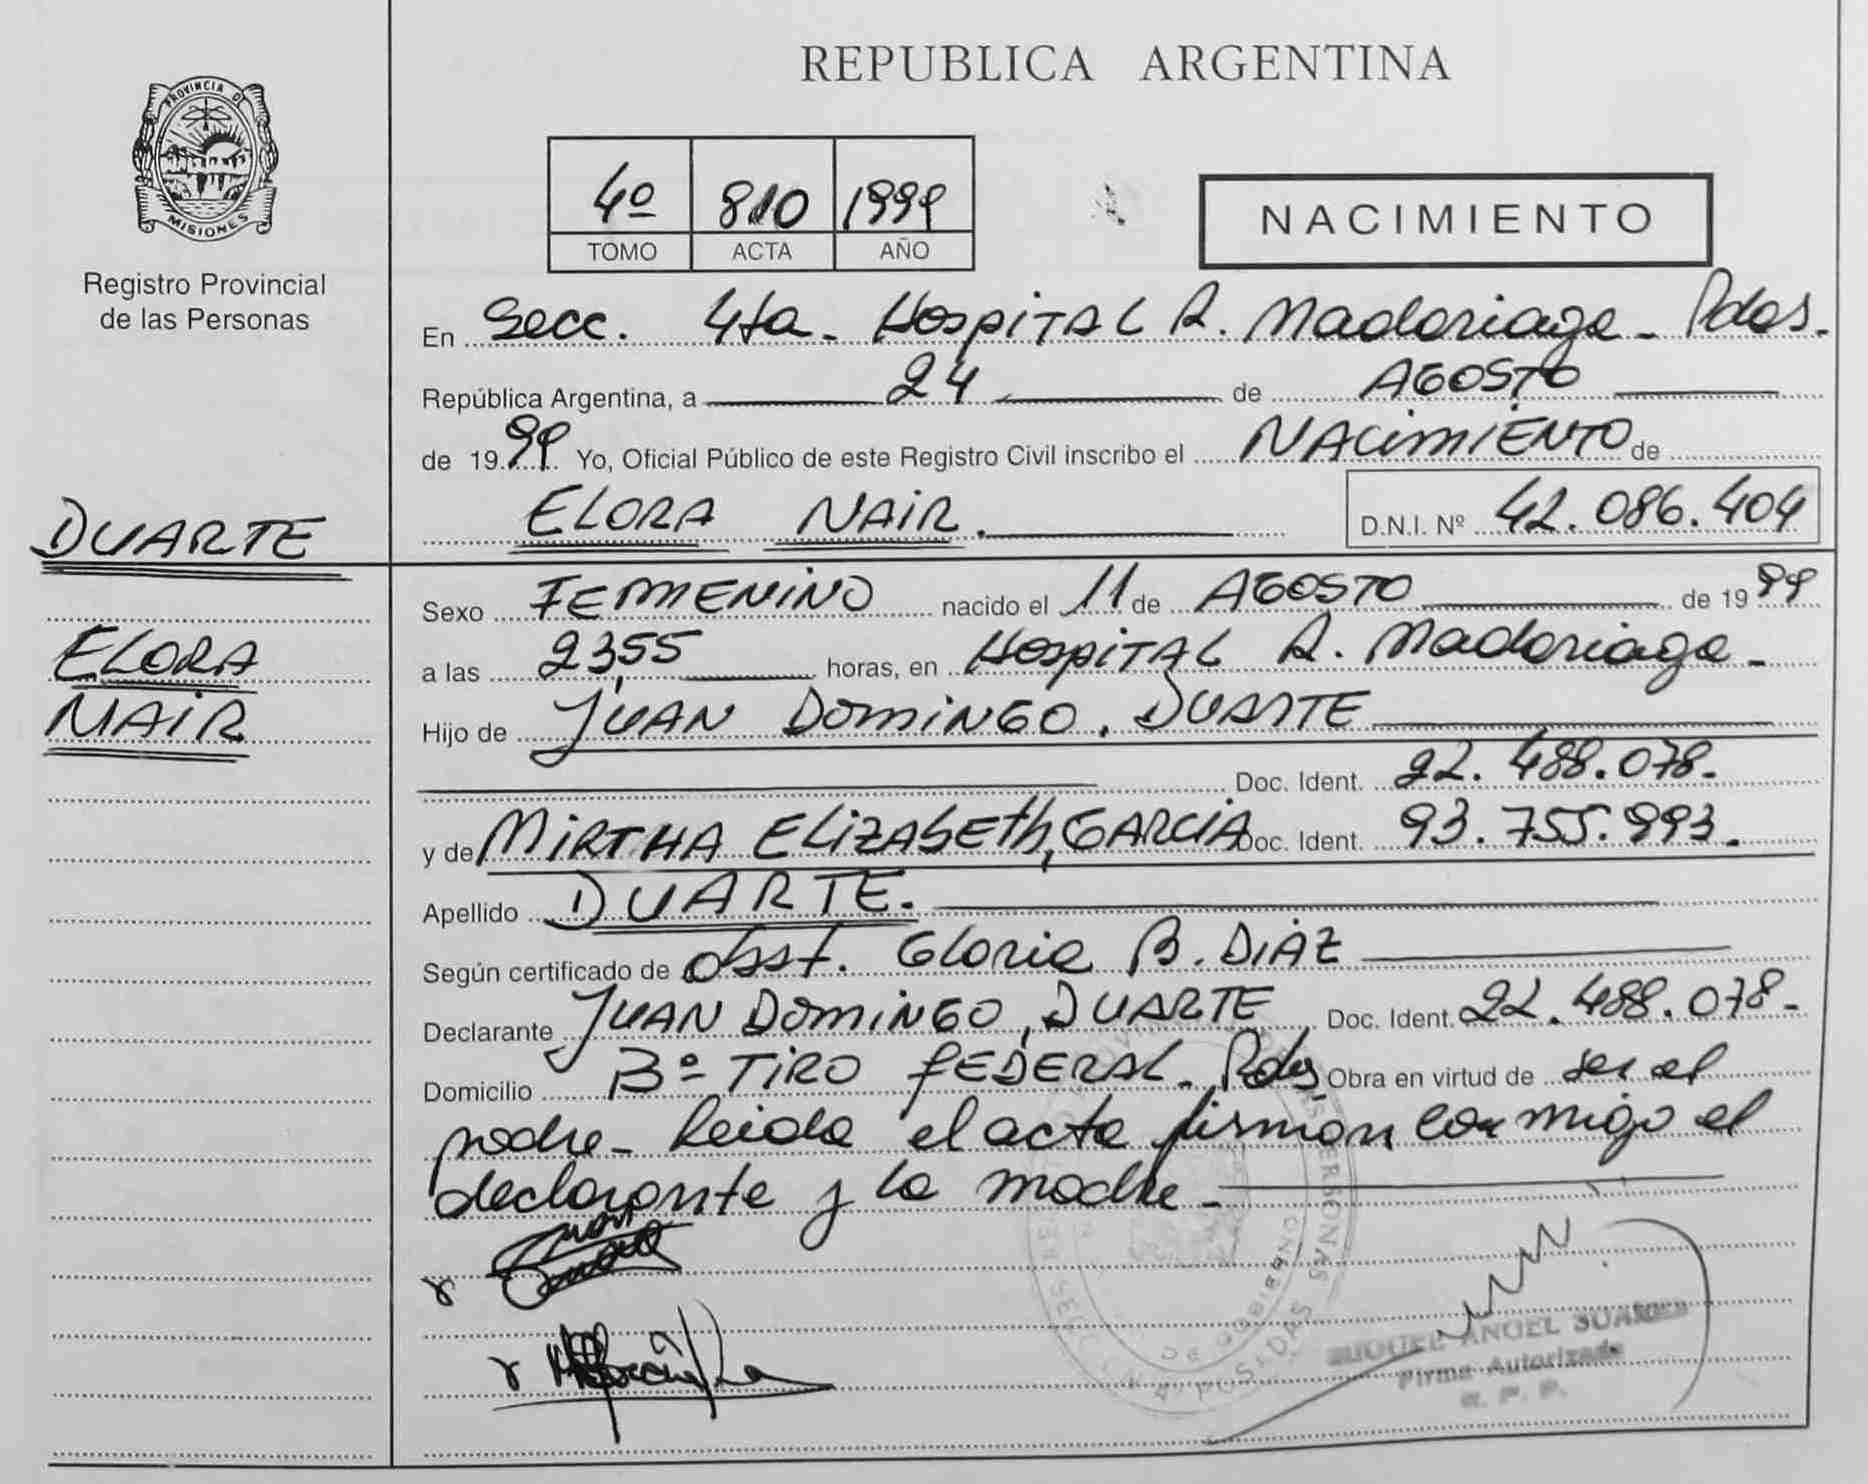 PROVINCIA DE
MISIONES
Registro Provincial
de las Personas
REPUBLICA ARGENTINA
4º 810 1999
TOMO ACTA AÑO
NACIMIENTO
En Secc. 4ta. Hospital R. Madariaga - Pdas.
República Argentina, a 24 de AGOSTO
de 1999 Yo, Oficial Público de este Registro Civil inscribo el NACIMIENTO de
ELORA NAIR. D.N.I. Nº 42.086.404
DUARTE
ELORA
NAIR
Sexo FEMENINO nacido el 11 de AGOSTO de 1999
a las 23,55 horas, en Hospital R. Madariaga -
Hijo de JUAN DOMINGO, DUARTE
Doc. Ident. 22.488.078.
y de MIRTHA ELIZABETh, GARCIA Doc. Ident. 93.755.993.
Apellido DUARTE.
Según certificado de Obst. Gloria B. DIAZ
Declarante JUAN DOMINGO, DUARTE Doc. Ident. 22.488.078-
Domicilio Bº TIRO FEDERAL - Pdas Obra en virtud de ser el
padre - Leida el acta firman conmigo el
declarante y la madre -
MIGUEL ANGEL SUAREZ
Firma Autorizada
R. P. P.